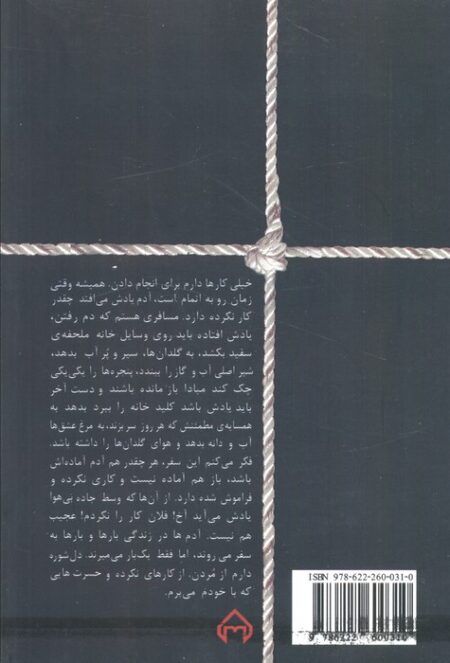 خیلی کارها دارم برای انجام دادن. همیشه وقتی
زمان رو به اتمام است، آدم یادش می‌افتد چقدر
کار نکرده دارد. مسافری هستم که دم رفتن،
یادش افتاده باید روی وسایل خانه ملحفه‌ی
سفید بکشد، به گلدان‌ها، سیر و پُر آب بدهد،
شیر اصلی آب و گاز را ببندد، پنجره‌ها را یکی‌یکی
چک کند مبادا باز مانده باشند و دست آخر
باید یادش باشد کلید خانه را ببرد بدهد به
همسایه‌ی مطمئنش که هر روز سر بزند، به مرغ عشق‌ها
آب و دانه بدهد و هوای گلدان‌ها را داشته باشد.
فکر می‌کنم این سفر، هر چقدر هم آدم آماده‌اش
باشد، باز هم آماده نیست و کاری نکرده و
فراموش شده دارد. از آن‌ها که وسط جاده بی‌هوا
یادش می‌آید آخ! فلان کار را نکردم! عجیب
هم نیست. آدم ها در زندگی بارها و بارها به
سفر می روند، اما فقط یک‌بار می‌میرند. دل‌شوره
دارم از مُردن. از کارهای نکرده و حسرت هایی
که با خودم می‌برم.
ISBN 978-622-260-031-0
9 786222 600310